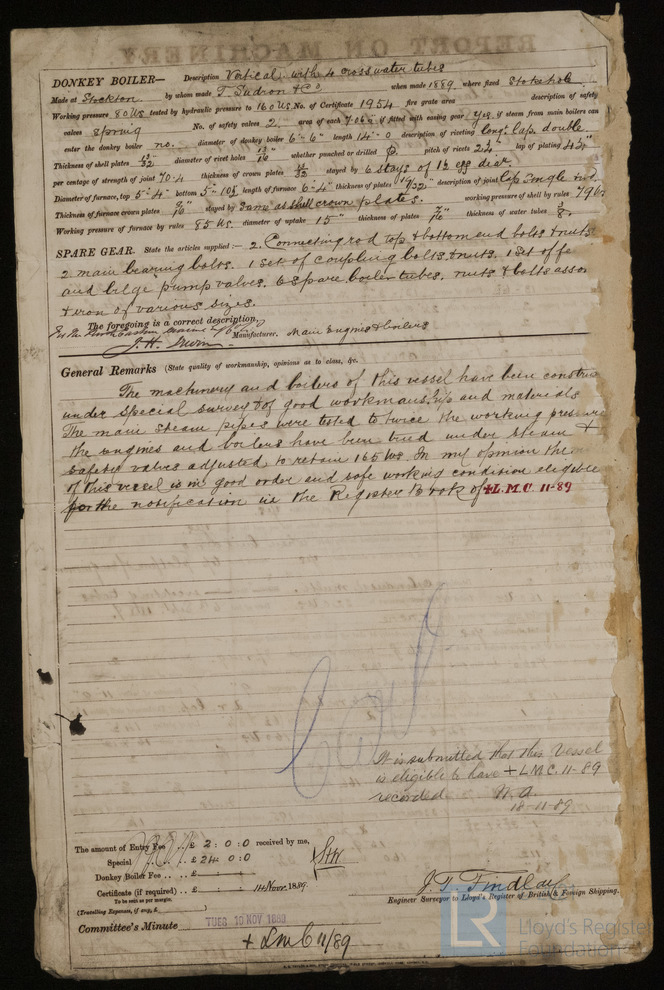 REPORT ON MACHINERY
DONKEY BOILER— Description Vertical with 4 cross water tubes
Made at Stockton by whom made T. Sudron & Co when made 1889 where fixed Stokehole
Working pressure 80 lbs tested by hydraulic pressure to 160 lbs No. of Certificate 1954 fire grate area description of safety
valves Spring No. of safety valves 2 area of each 7.06 if fitted with easing gear Yes if steam from main boilers can
enter the donkey boiler no. diameter of donkey boiler 6'-6" length 14'-0 description of riveting long. lap double
Thickness of shell plates 13/32 diameter of rivet holes 13/16" whether punched or drilled pitch of rivets 2 3/4" lap of plating 4 1/4"
per centage of strength of joint 70.4 thickness of crown plates 13/32 stayed by 6 stays of 1 1/2 eff diar.
Diameter of furnace, top 5'-4" bottom 5'-10 1/2 length of furnace 6'-4" thickness of plates 19/32" description of joint lap single
Thickness of furnace crown plates 9/16" stayed by Same as shell crown plates. working pressure of shell by rules 79 lbs
Working pressure of furnace by rules 85 lbs diameter of uptake 15" thickness of plates 7/16" thickness of water tubes 3/8"
SPARE GEAR. State the articles supplied :— 2. Connecting rod top & bottom end bolts & nuts
2 main bearing bolts. 1 Set of coupling bolts & nuts. 1 Set of fe
and bilge pump valves. 6 spare boiler tubes. nuts & bolts asso
& iron of various sizes.
The foregoing is a correct description,
J. H. Irwin Manufacturer. Main Engines & boilers
General Remarks (State quality of workmanship, opinions as to class, &c.
The machinery and boilers of this vessel have been constru
under Special survey & of good workmanship and materials
The main steam pipes were tested to twice the working pressure
the engines and boilers have been tried under steam &
safety valves adjusted to retain 165 lbs. In my opinion the
of this vessel is in good order and safe working condition eligible
for the notification in the Register Book of +L.M.C. 11-89
It is submitted that this Vessel
is eligible to have + LMC. 11-89
recorded
18-11-89
The amount of Entry Fee .. £ 2 : 0 : 0 received by me,
Special .. .. £ 24 : 0 : 0
Donkey Boiler Fee .. .. £ : :
Certificate (if required) .. £ : : 14 Novr. 1889
To be sent as per margin.
(Travelling Expenses, if any, £ )
J. T. Findlay
Engineer Surveyor to Lloyd's Register of British & Foreign Shipping.
Committee's Minute TUES 19 NOV 1889
+ LMC 11/89
LR
Lloyd's Register
Foundation